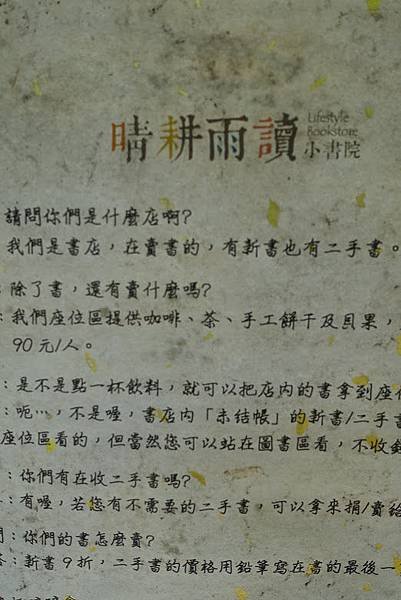 晴耕雨讀
Lifestyle
Bookstore
小書院
請問你們是什麼店啊?
我們是書店,在賣書的,有新書也有二手書。
:除了書,還有賣什麼嗎?
:我們座位區提供咖啡、茶、手工餅干及貝果,
90元/人。
:是不是點一杯飲料,就可以把店內的書拿到座位
:呃…,不是喔,書店內「未結帳」的新書/二手書
座位區看的,但當然您可以站在圖書區看,不收錢
:你們有在收二手書嗎?
:有喔,若您有不需要的二手書,可以拿來捐/賣給
問:你們的書怎麼賣?
答:新書9折,二手書的價格用鉛筆寫在書的最後一